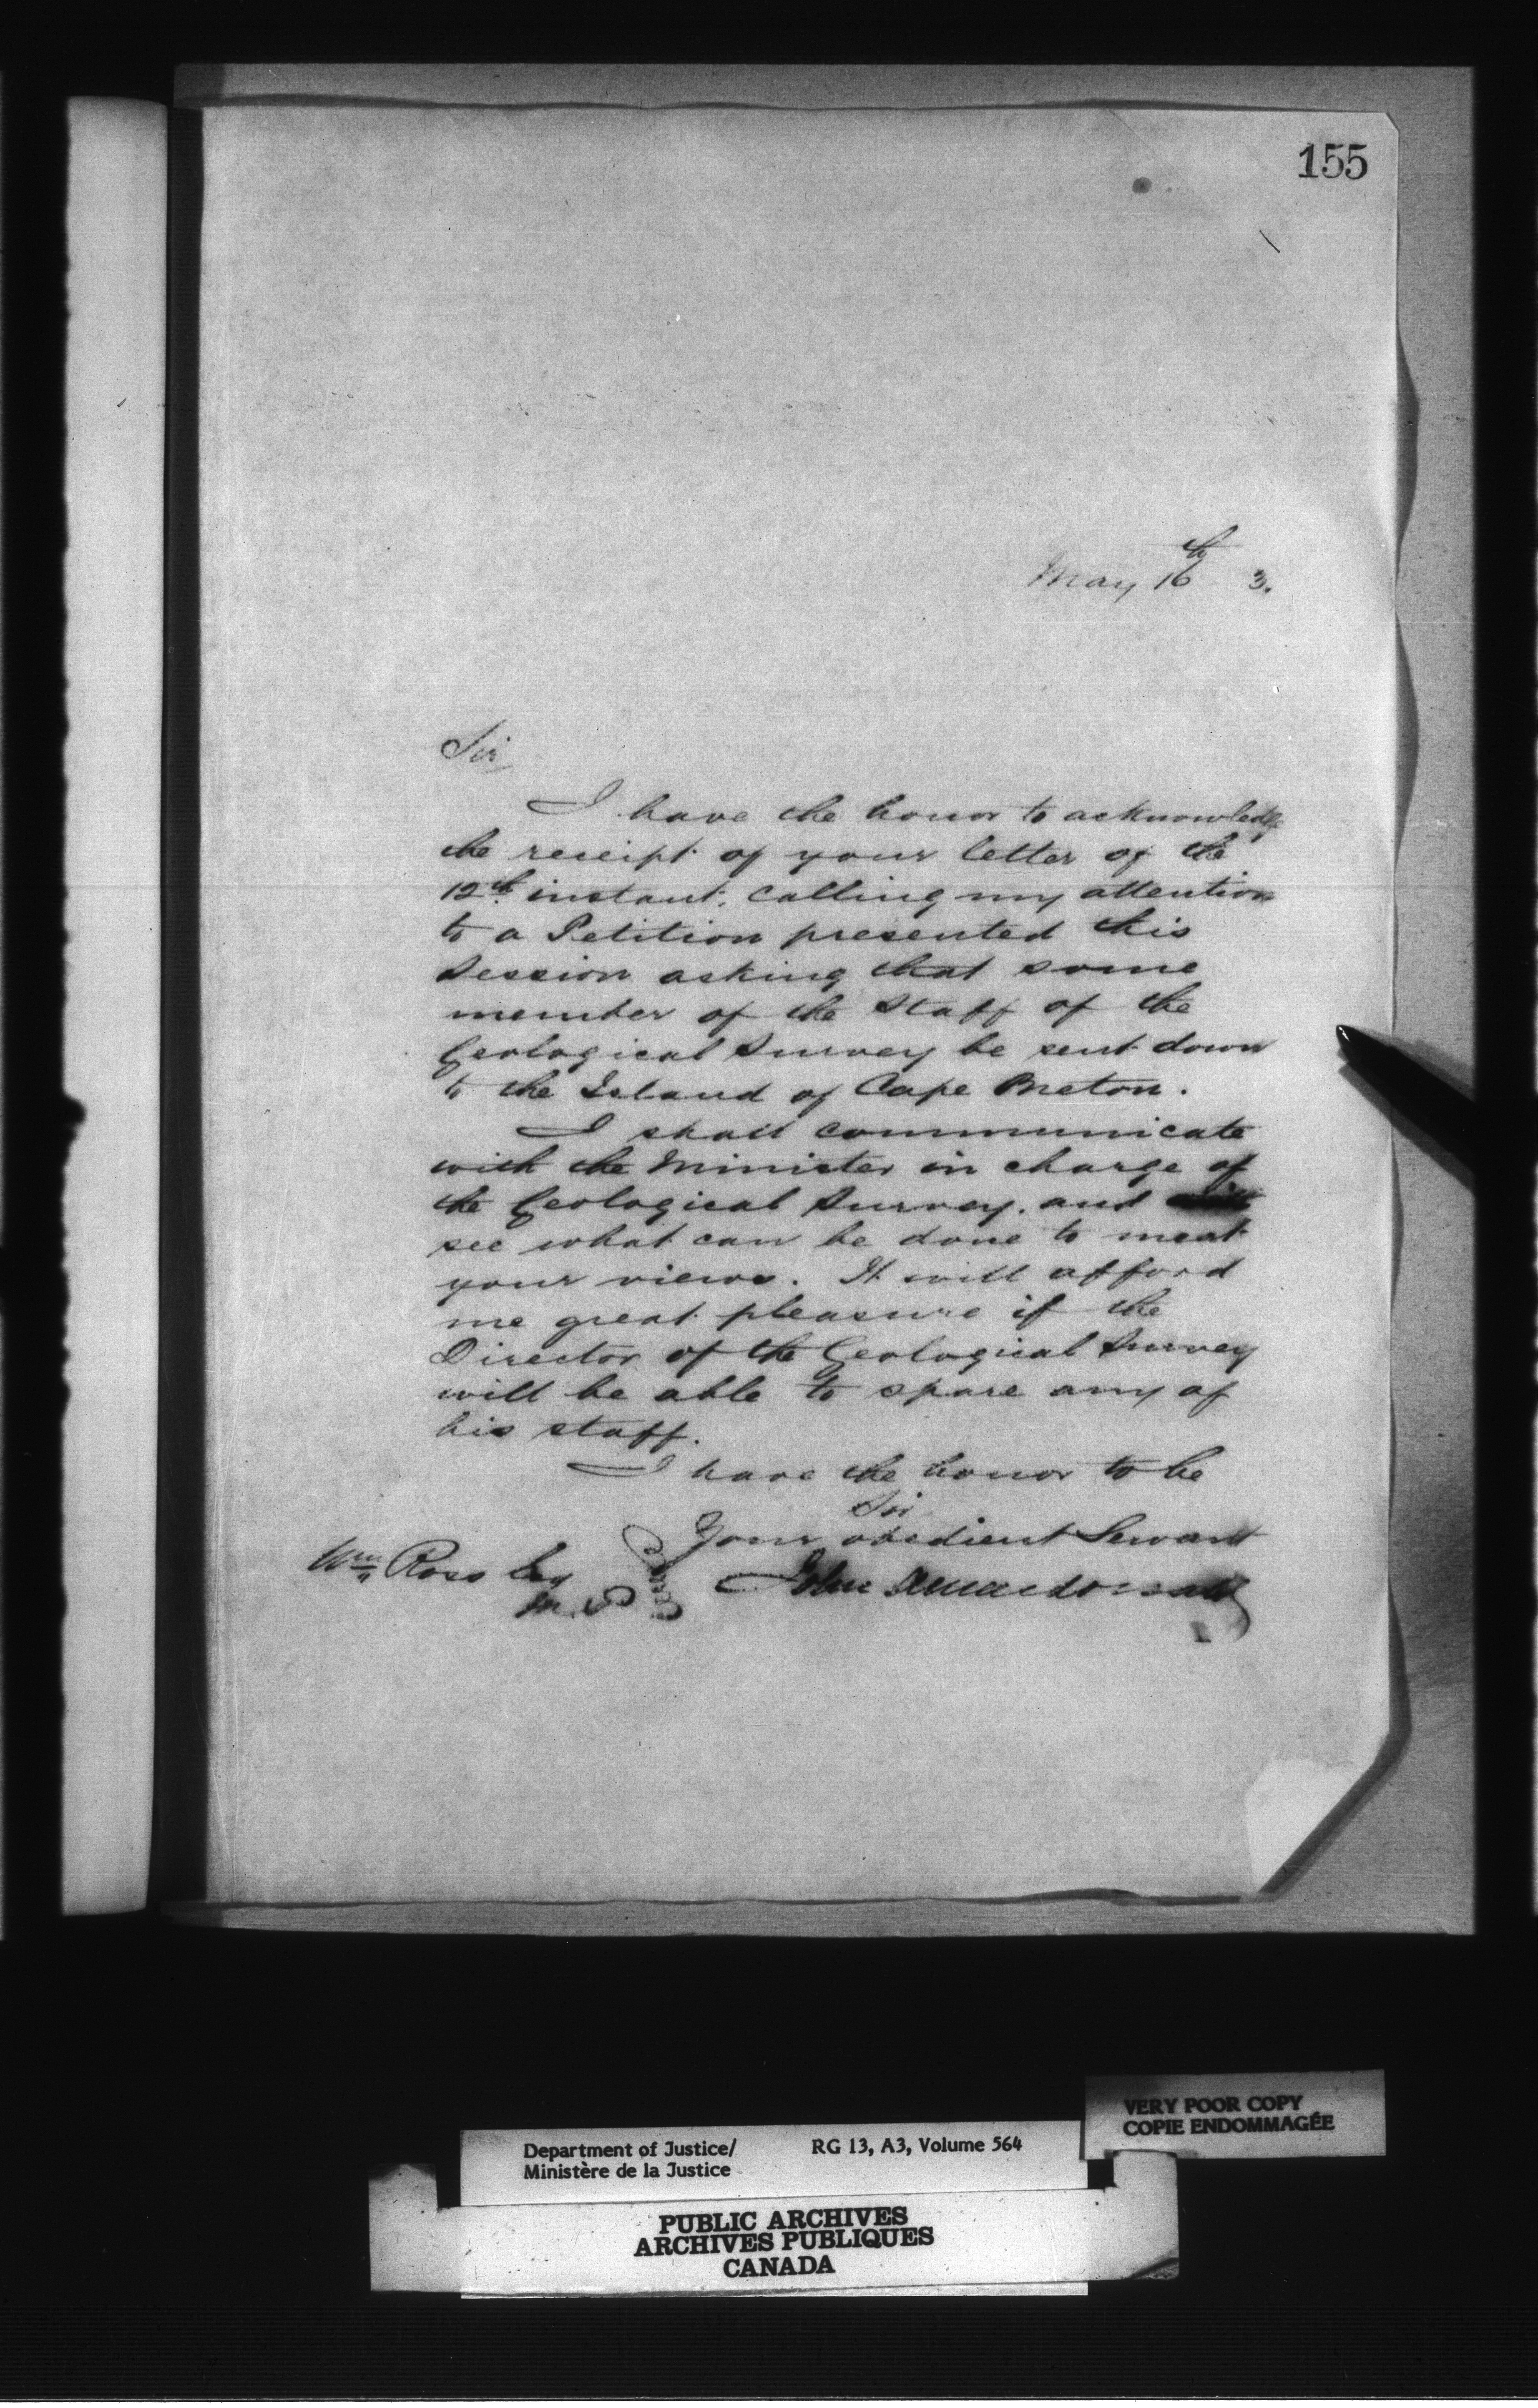 155
May 16th 3.
Sir
I have the honor to acknowledge
the receipt of your letter of the
12th instant, calling my attention
to a Petition presented this
Session asking that some
member of the Staff of the
Geological Survey be sent down
to the Island of Cape Breton.
I shall communicate
with the Minister in charge of
the Geological Survey, and
see what can be done to meet
your views. It will afford
me great pleasure if the
Director of the Geological Survey
will be able to spare any of
his staff.
I have the honor to be
Sir
Your obedient Servant
John A Macdonald
Wm Ross Esq
M.P.
VERY POOR COPY
COPIE ENDOMMAGÉE
Department of Justice/ RG 13, A3, Volume 564
Ministère de la Justice
PUBLIC ARCHIVES
ARCHIVES PUBLIQUES
CANADA